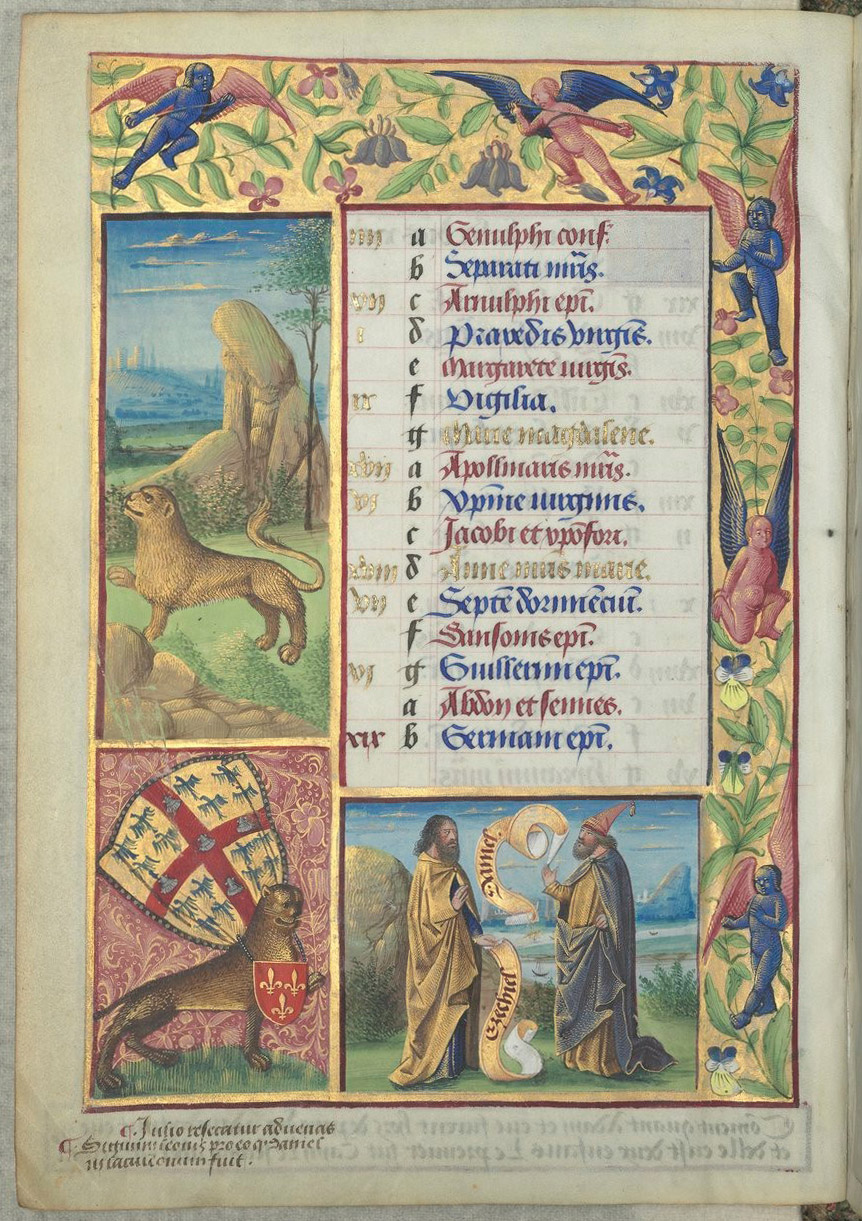 iiii a Genulphi conf.
b Separati mr̄is.
viii c Arnulphi ep̄i.
i d Praxedis virgīs.
e Margarete virgīs.
ix f Vigilia.
g Marie magdalene.
xvii a Apollinaris mr̄is.
vi b Xp̄ine virginis.
c Jacobi et xpōfori.
xiiii d Anne matris marie.
iii e Septē dormiēciū.
f Sansonis ep̄i.
xi g Guillermi ep̄i.
a Abdon et sennes.
xix b Germani ep̄i.
Daniel.
Ezechiel
¶ Julio resecatur aduenas
¶ Signum leonis pro eo q Daniel
in lacu leonum fuit.